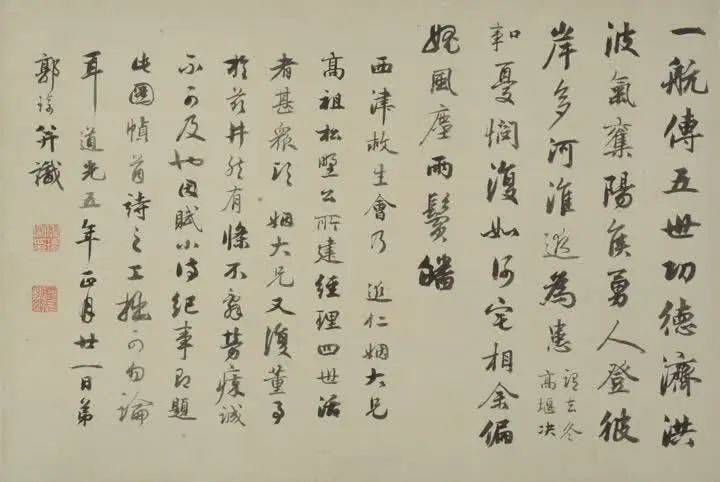 一航傳五世功德濟洪
波氣奪陽侯勇人登彼
岸多河淮邇為患
謂去冬
高堰决
知憂惘復如何宅相余偏
媿風塵兩鬢皤
西津救生會乃 邇仁姻大兄
高祖松墅公所建經理四世活
者甚眾頃 姻大兄又復董事
於兹井然有條不辭勞瘁誠
不可及也因賦小詩紀事即題
此圖幀首詩之工拙可勿論
耳 道光五年正月廿一日弟
郭 并識